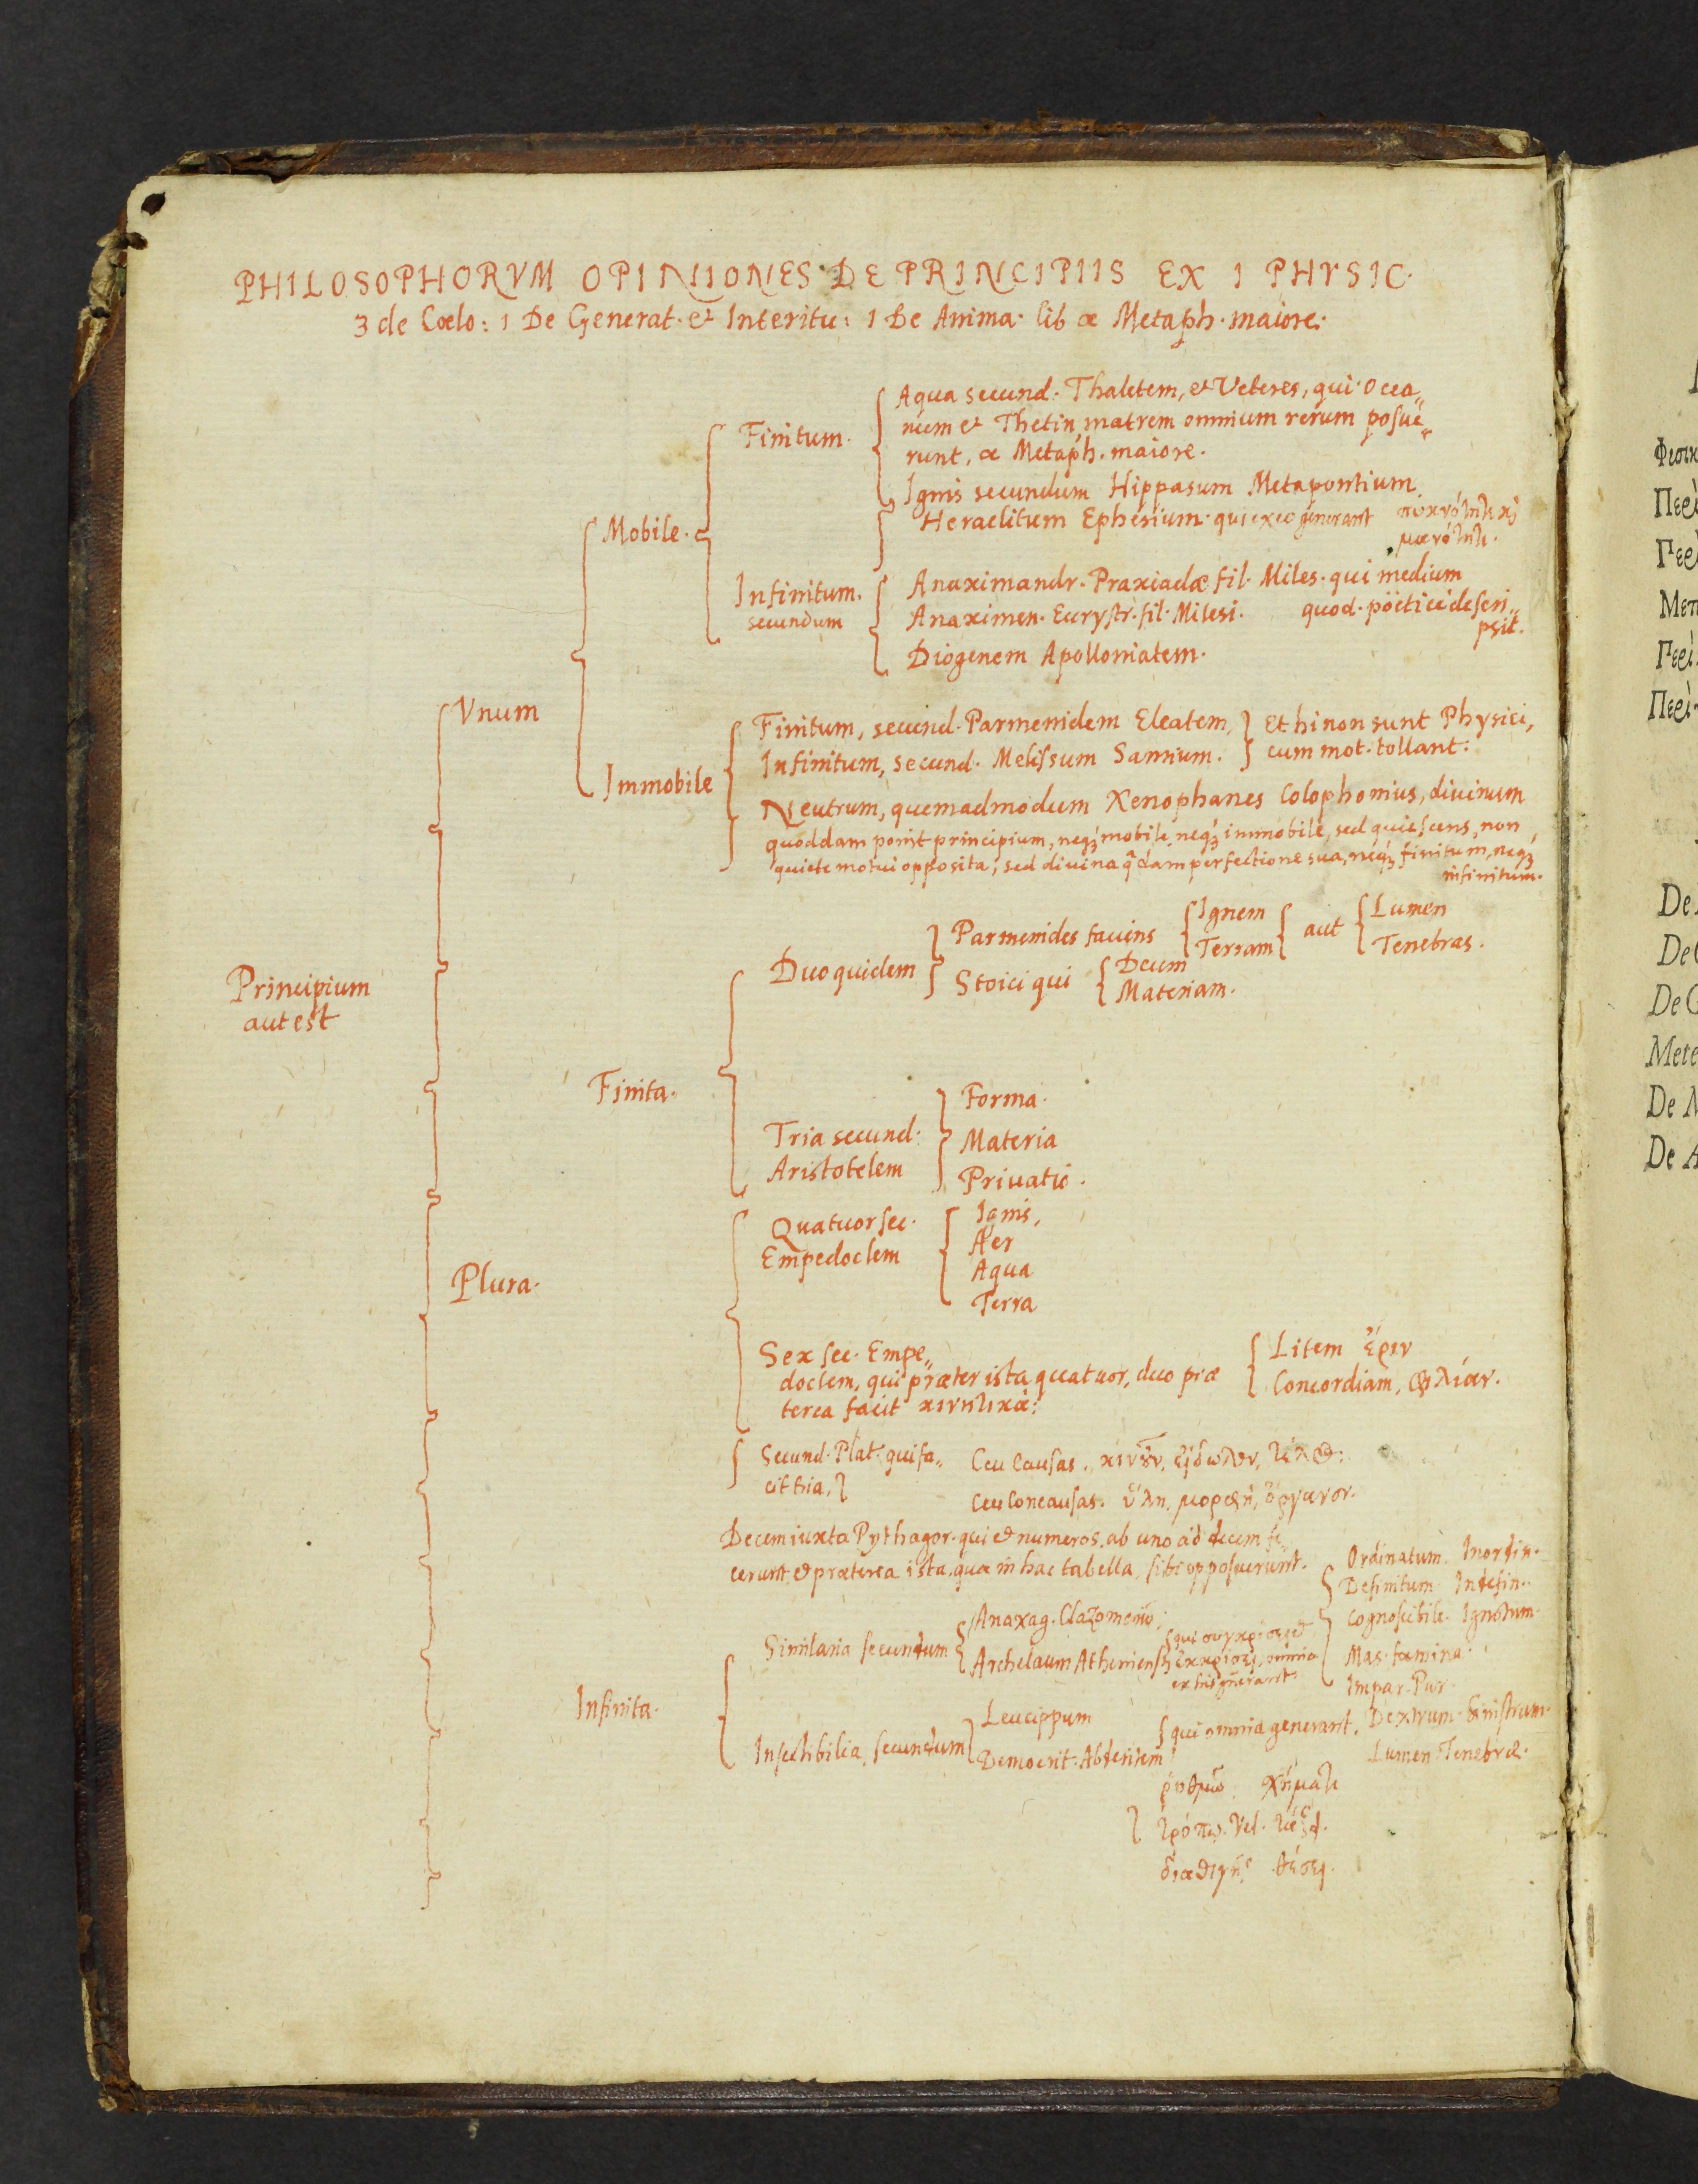 PHILOSOPHORVM OPINIONES DE PRINCIPIIS EX I PHYSIC.
3 de Coelo: 1 De Generat. et Interitu: 1 De Anima. lib α Metaph. maiore.
Principium
aut est
Vnum
Mobile.
Finitum.
Aqua secund. Thaletem, et Veteres, qui Ocea„
num et Thetin, matrem omnium rerum posue„
runt, α Metaph. maiore.
Ignis secundum Hippasum Metapontium
Heraclitum Ephesium. qui ex eo generant πυκνότητι καὶ
μανότητι.
Infinitum.
secundum
Anaximandr. Praxiadæ fil. Miles. qui medium
Anaximen. Eurystr. fil. Milesi. quod. pöetice descri„
psit.
Diogenem Apolloniatem.
Immobile
Finitum, secund. Parmenidem Eleatem,
Infinitum, secund. Melissum Samium.
Et hi non sunt Physici,
cum mot. tollant.
Neutrum, quemadmodum Xenophanes Colophonius, divinum
quoddam ponit principium, neqȝ mobile, neqȝ immobile, sed quiescens, non
quiete motui opposita, sed divina q̃dam perfectione sua, neqȝ finitum, neqȝ
infinitum.
Plura.
Finita.
Duo quidem
Parmenides faciens
Ignem
Terram
aut
Lumen
Tenebras.
Stoici qui
Deum
Materiam.
Tria secund.
Aristotelem
Forma.
Materia
Privatio.
Quatuor sec.
Empedoclem
Ignis,
Aer
Aqua
Terra
Sex sec. Empe„
doclem, qui præter ista quatuor, duo præ
terea facit κινητικά:
Litem ἔριν
Concordiam, φιλίαν.
Secund. Plat. qui fa„
cit tria,
Ceu Causas. κινοῦν, εἴδωλον, τέλος:
ceu Concausas. ὕλη, μορφή, ὄργανον.
Decem iuxta Pythagor. qui et numeros. ab uno ad decem fe„
cerunt, et præterea ista, quæ in hac tabella, sibi opposuerunt.
Ordinatum. Inordin.
Definitum Indefin.
Cognoscibile. Ignotum.
Mas. fæmina.
Impar. Par.
Dextrum. Sinistrum.
Lumen. Tenebræ.
Infinita.
Similaria secundum
Anaxag. Clazomeniũ.
Archelaum Atheniensẽ
qui συγκρίσει et
ἐκκρίσει, omnia
ex his gñerant.
Insectibilia, secundum
Leucippum
Democrit. Abderitem
qui omnia generant.
ῥυθμῷ, σχήματι
τρόπῳ. Vel. τάξει.
διαθιγῇ, θέσει.